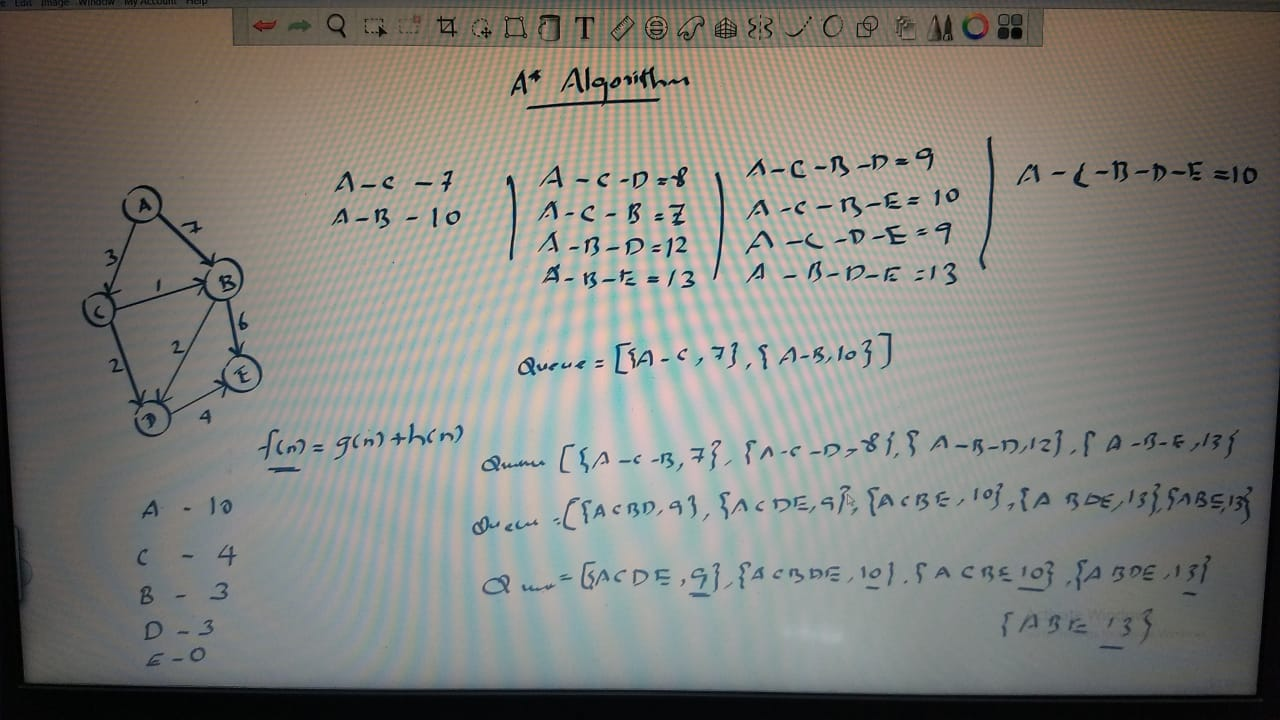 Edit Image Window My Account Help
T
A* Algorithm
A-C-7
A-B-10
A-C-D=8
A-C-B=7
A-B-D=12
A-B-E=13
A-C-B-D=9
A-C-B-E=10
A-C-D-E=9
A-B-D-E=13
A-C-B-D-E=10
A
7
3
B
1
C
6
2
2
E
D
4
Queue=[{A-C,7},{A-B,10}]
f(n)=g(n)+h(n)
Queue [{A-C-B,7},{A-C-D,8},{A-B-D,12},{A-B-E,13}
Queue=[{ACBD,9},{ACDE,9},{ACBE,10},{ABDE,13}{ABE,13}
Queue=[{ACDE,9},{ACBDE,10},{ACBE 10},{ABDE,13}
{ABE 13}
A - 10
C - 4
B - 3
D - 3
E - 0